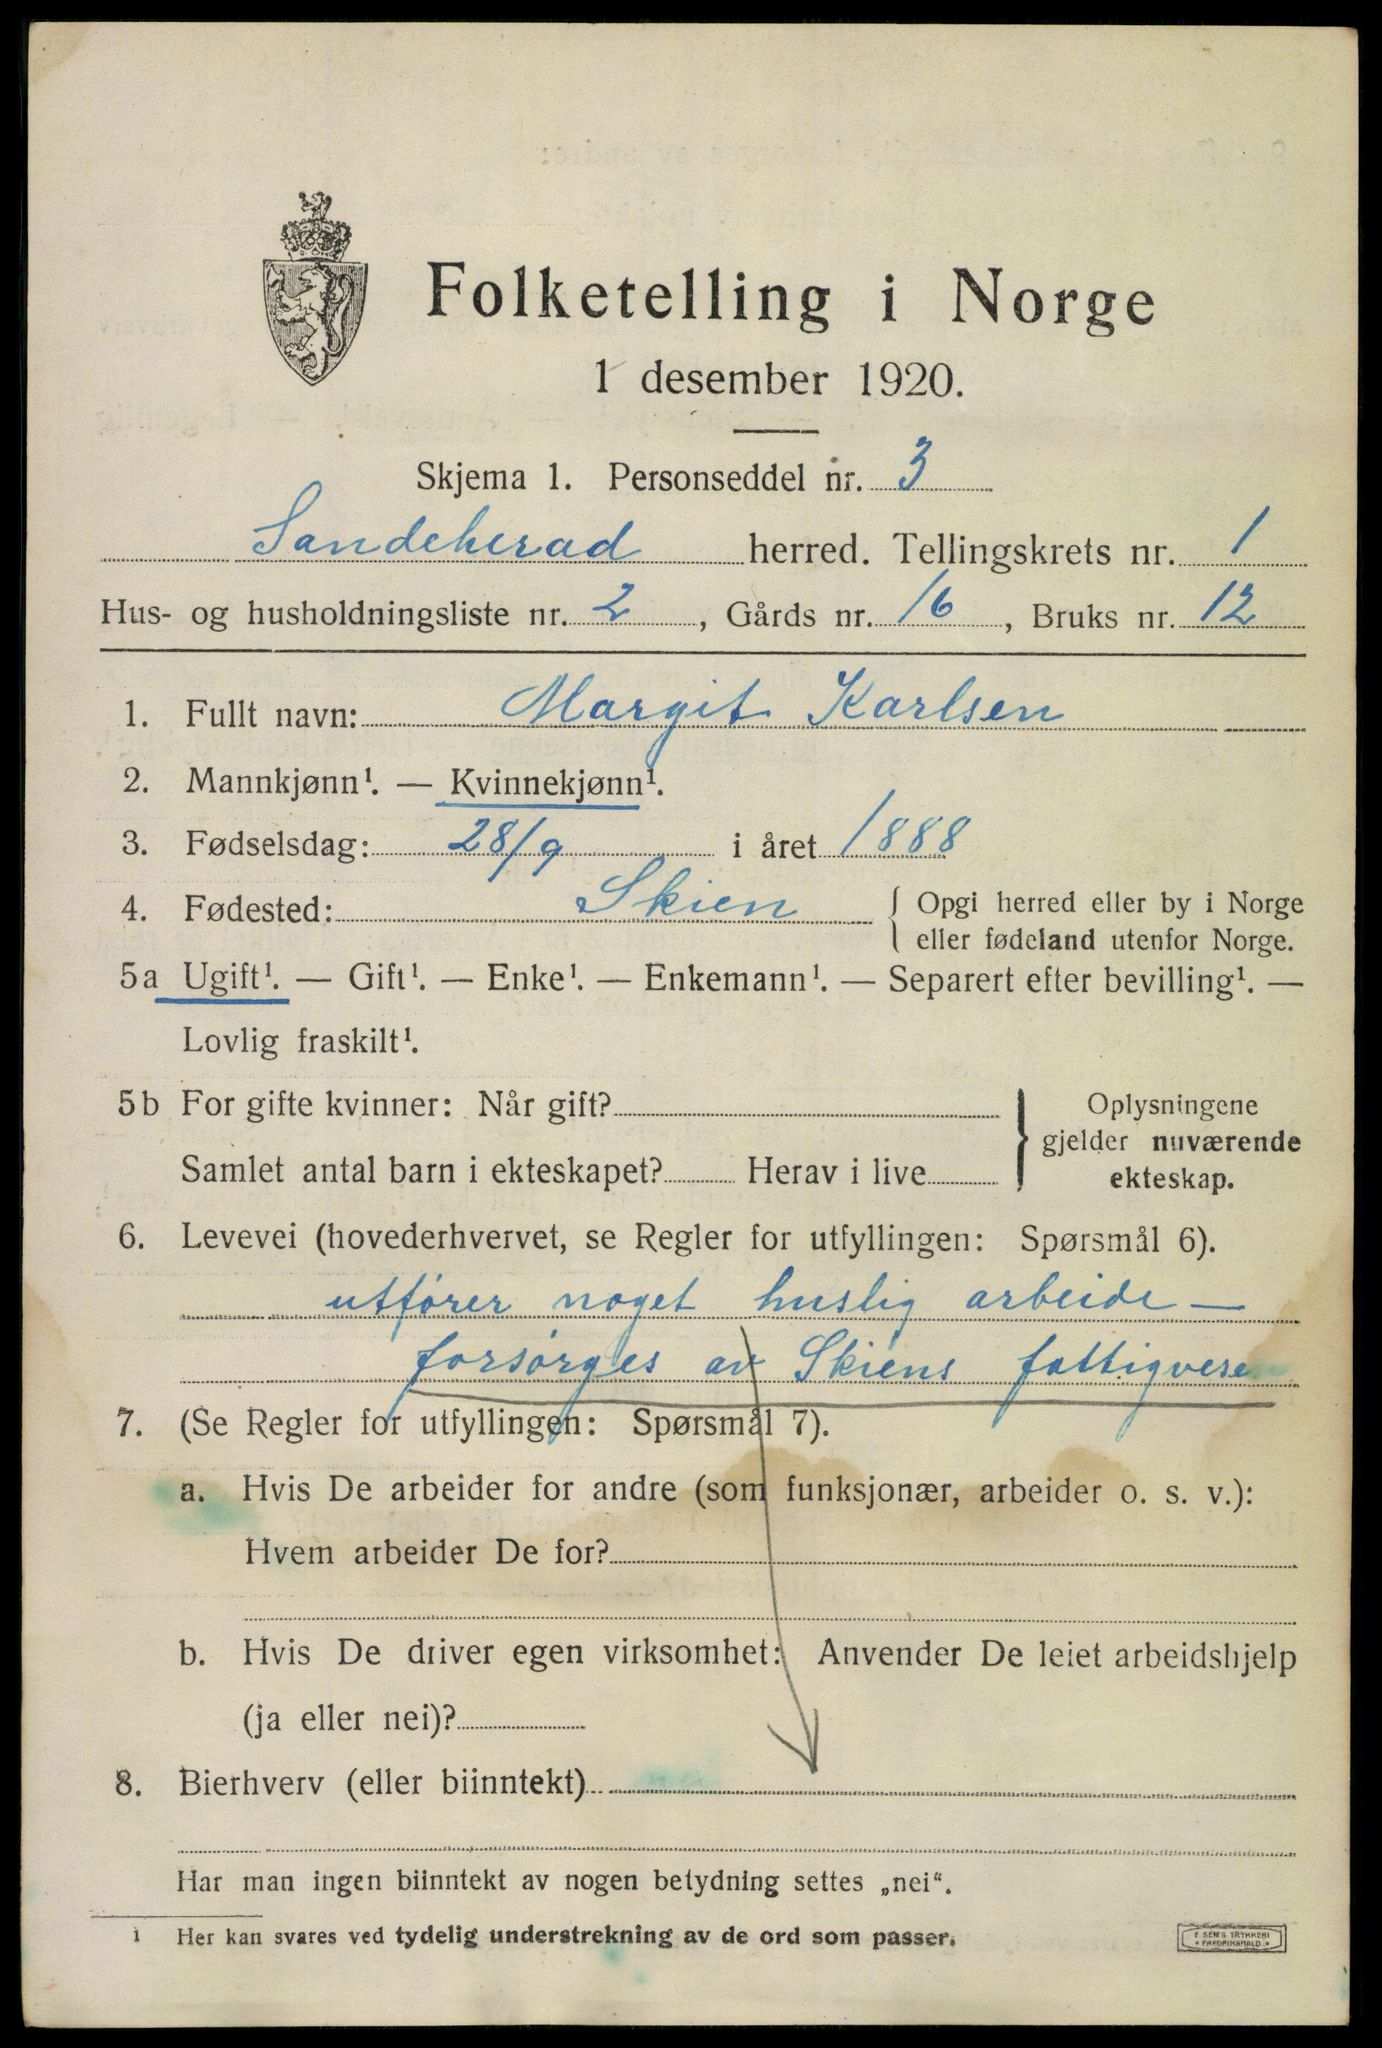 Folketelling i Norge
1 desember 1920.
Skjema 1. Personseddel nr. 3
Sandeherad herred. Tellingskrets nr. 1
Hus- og husholdningsliste nr. 2, Gårds nr. 16, Bruks nr. 12
1. Fullt navn: Margit Karlsen
2. Mannkjønn¹. — Kvinnekjønn¹.
3. Fødselsdag: 28/9 i året 1888
4. Fødested: Skien { Opgi herred eller by i Norge
eller fødeland utenfor Norge.
5a Ugift¹. — Gift¹. — Enke¹. — Enkemann¹. — Separert efter bevilling¹. —
Lovlig fraskilt¹.
5b For gifte kvinner: Når gift?
Samlet antal barn i ekteskapet? Herav i live
} Oplysningene
gjelder nuværende
ekteskap.
6. Levevei (hovederhvervet, se Regler for utfyllingen: Spørsmål 6).
utfører noget huslig arbeide —
forsørges av Skiens fattigvesen
7. (Se Regler for utfyllingen: Spørsmål 7).
a. Hvis De arbeider for andre (som funksjonær, arbeider o. s. v.):
Hvem arbeider De for?
b. Hvis De driver egen virksomhet: Anvender De leiet arbeidshjelp
(ja eller nei)?
8. Bierhverv (eller biinntekt)
Har man ingen biinntekt av nogen betydning settes „nei“.
1 Her kan svares ved tydelig understrekning av de ord som passer.
E. SEM'S TRYKKERI
• FREDRIKSHALD •